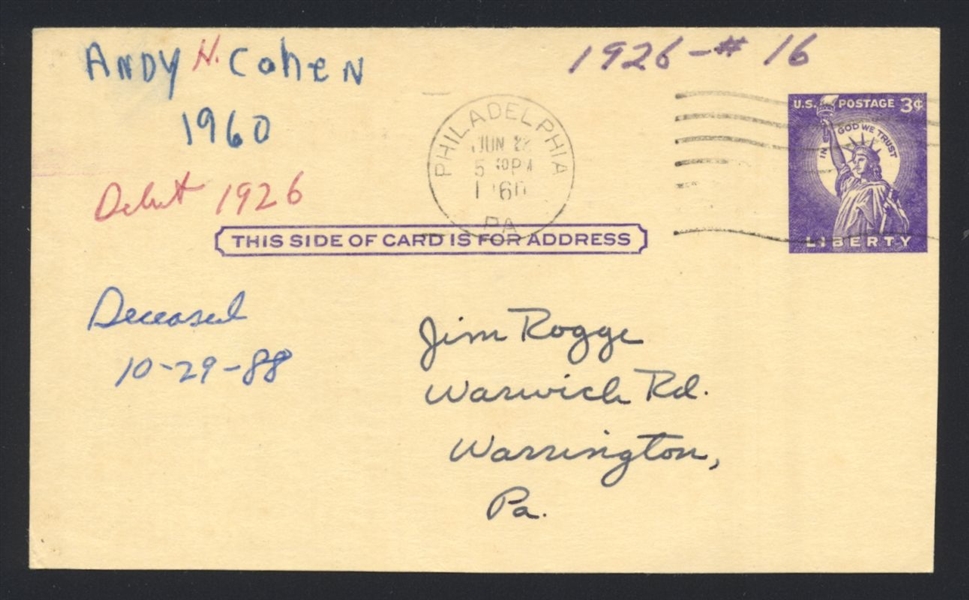 Andy H. Cohen
1960
Debut 1926
1926-#16
PHILADELPHIA
JUN 2
5 PM
1960
PA
U.S. POSTAGE 3¢
IN GOD WE TRUST
LIBERTY
THIS SIDE OF CARD IS FOR ADDRESS
Deceased
10-29-88
Jim Rogge
Warwick Rd.
Warrington,
Pa.